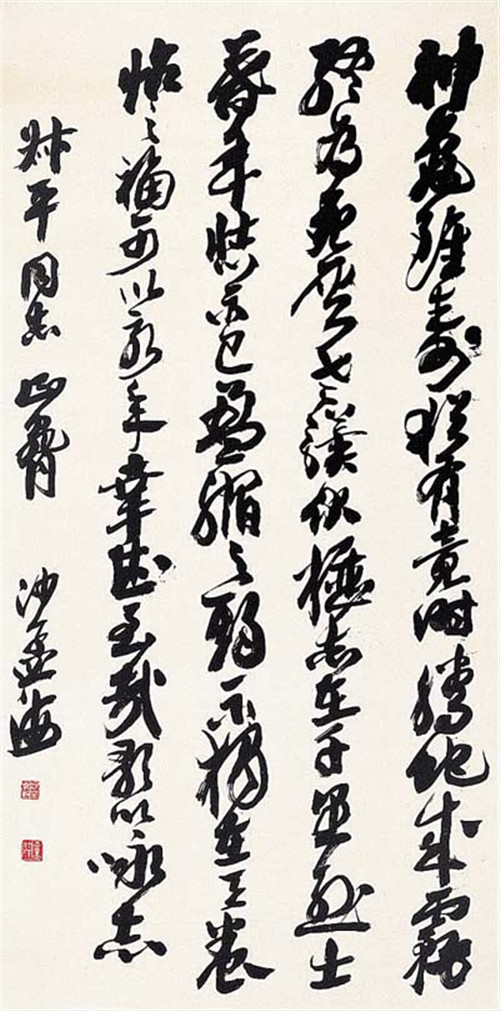 神龜雖壽猶有竟時騰蛇成霧
終為土灰老驥伏櫪志在千里烈士
暮年壯心不已盈縮之期不獨在天養
怡之福可以永年幸甚至哉歌以咏志
叔平同志正腕 沙孟海